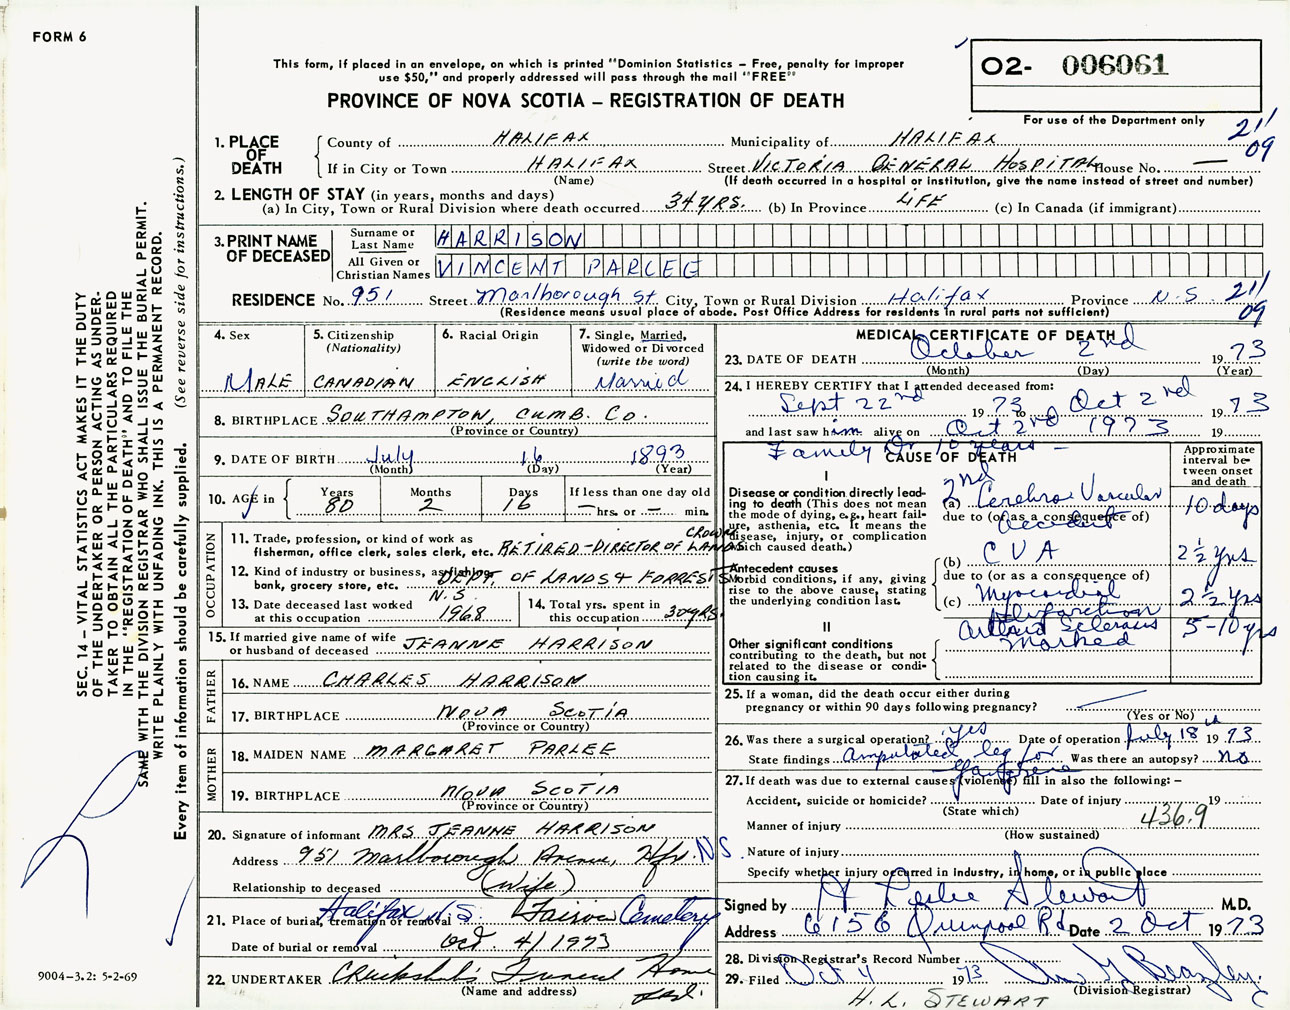 FORM 6
This form, if placed in an envelope, on which is printed "Dominion Statistics – Free, penalty for improper
use $50," and properly addressed will pass through the mail "FREE"
PROVINCE OF NOVA SCOTIA – REGISTRATION OF DEATH
O2- 006061
For use of the Department only
21/
09
1. PLACE OF DEATH
County of HALIFAX Municipality of HALIFAX
If in City or Town HALIFAX Street VICTORIA GENERAL HOSPITAL House No. —
(Name) (If death occurred in a hospital or institution, give the name instead of street and number)
2. LENGTH OF STAY (in years, months and days)
(a) In City, Town or Rural Division where death occurred 34 YRS. (b) In Province LIFE (c) In Canada (if immigrant)
3. PRINT NAME OF DECEASED
Surname or Last Name HARRISON
All Given or Christian Names VINCENT PARLEE
RESIDENCE No. 951 Street Marlborough St. City, Town or Rural Division Halifax Province N.S.
21/
09
(Residence means usual place of abode. Post Office Address for residents in rural parts not sufficient)
4. Sex
MALE
5. Citizenship (Nationality)
CANADIAN
6. Racial Origin
ENGLISH
7. Single, Married, Widowed or Divorced (write the word)
Married
8. BIRTHPLACE SOUTHAMPTON, CUMB. CO.
(Province or Country)
9. DATE OF BIRTH July 16 1893
(Month) (Day) (Year)
10. AGE in Years 80 Months 2 Days 16 If less than one day old — hrs. or — min.
OCCUPATION
11. Trade, profession, or kind of work as
fisherman, office clerk, sales clerk, etc. RETIRED - DIRECTOR OF CROWN LANDS
12. Kind of industry or business, as fishing,
bank, grocery store, etc. DEPT. OF LANDS & FORRESTS
N.S.
13. Date deceased last worked at this occupation 1968
14. Total yrs. spent in this occupation 30 YRS.
15. If married give name of wife or husband of deceased JEANNE HARRISON
FATHER
16. NAME CHARLES HARRISON
17. BIRTHPLACE NOVA SCOTIA
(Province or Country)
MOTHER
18. MAIDEN NAME MARGARET PARLEE
19. BIRTHPLACE NOVA SCOTIA
(Province or Country)
20. Signature of informant MRS JEANNE HARRISON
Address 951 Marlborough Avenue, Hfx. NS
Relationship to deceased (Wife)
21. Place of burial, cremation or removal Halifax N.S. Cemetery
Date of burial or removal Oct. 4/1973
22. UNDERTAKER Cruikshank's Funeral Home
(Name and address)
MEDICAL CERTIFICATE OF DEATH
23. DATE OF DEATH October 2nd 1973
(Month) (Day) (Year)
24. I HEREBY CERTIFY that I attended deceased from:
Sept 22nd 1973 to Oct 2nd 1973
and last saw him alive on Oct 2nd 1973 19
Family Dr 10 years –
CAUSE OF DEATH
Approximate interval between onset and death
I
Disease or condition directly leading to death (This does not mean the mode of dying, e.g., heart failure, asthenia, etc. It means the disease, injury, or complication which caused death.)
2nd
(a) Cerebro Vascular Accident 10 days
due to (or as a consequence of)
(b) C V A 2½ yrs
Antecedent causes
Morbid conditions, if any, giving rise to the above cause, stating the underlying condition last.
due to (or as a consequence of)
(c) Myocardial Infarction 2½ yrs
II
Other significant conditions
contributing to the death, but not related to the disease or condition causing it.
Sclerosis Marked 5-10 yrs
25. If a woman, did the death occur either during
pregnancy or within 90 days following pregnancy?
(Yes or No)
26. Was there a surgical operation? yes Date of operation July 18th 1973
State findings Amputated leg for Gangrene Was there an autopsy? no
27. If death was due to external causes (violence) fill in also the following: –
Accident, suicide or homicide? Date of injury 19
(State which)
Manner of injury 436.9
(How sustained)
Nature of injury
Specify whether injury occurred in Industry, in home, or in public place
Signed by H Leslie Stewart M.D.
Address 6156 Quinpool Rd Date 2 Oct 1973
28. Division Registrar's Record Number
29. Filed Oct 4 1973
(Division Registrar)
H. L. STEWART
SEC. 14 – VITAL STATISTICS ACT MAKES IT THE DUTY
OF THE UNDERTAKER OR PERSON ACTING AS UNDER-
TAKER TO OBTAIN ALL THE PARTICULARS REQUIRED
IN THE "REGISTRATION OF DEATH" AND TO FILE THE
SAME WITH THE DIVISION REGISTRAR WHO SHALL ISSUE THE BURIAL PERMIT.
WRITE PLAINLY WITH UNFADING INK. THIS IS A PERMANENT RECORD.
Every item of information should be carefully supplied. (See reverse side for instructions.)
9004–3.2: 5-2-69